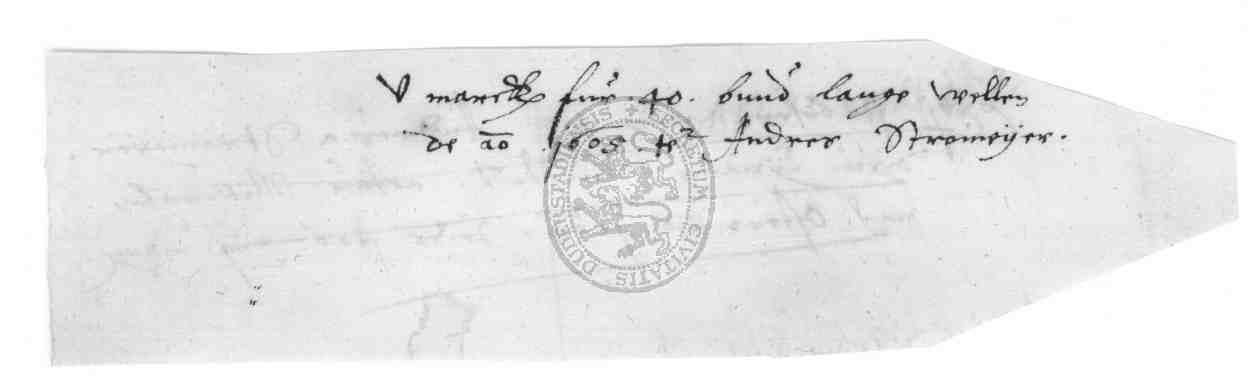 V marck für 40. bund lange wellen
de ao 1605 Andres Stromeÿer.
SECRETUM CIVITATIS DUDERSTADENSIS